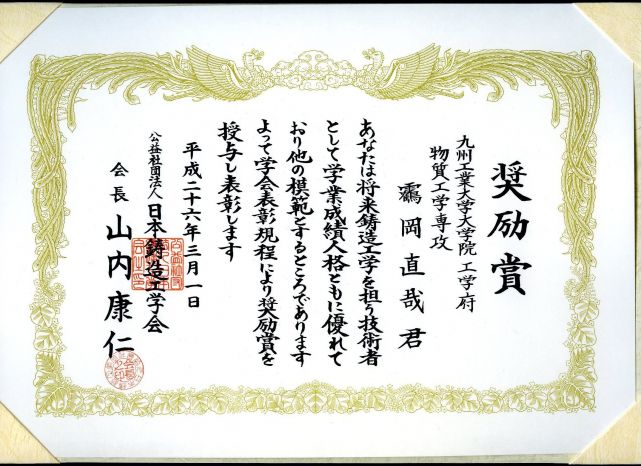 奨励賞
九州工業大学大学院 工学府
物質工学専攻
靍岡直哉君
あなたは将来鋳造工学を担う技術者
として学業成績人格ともに優れて
おり他の模範とするところであります
よって学会表彰規程により奨励賞を
授与し表彰します
平成二十六年三月一日
公益社団法人日本鋳造工学会
会長 山内康仁